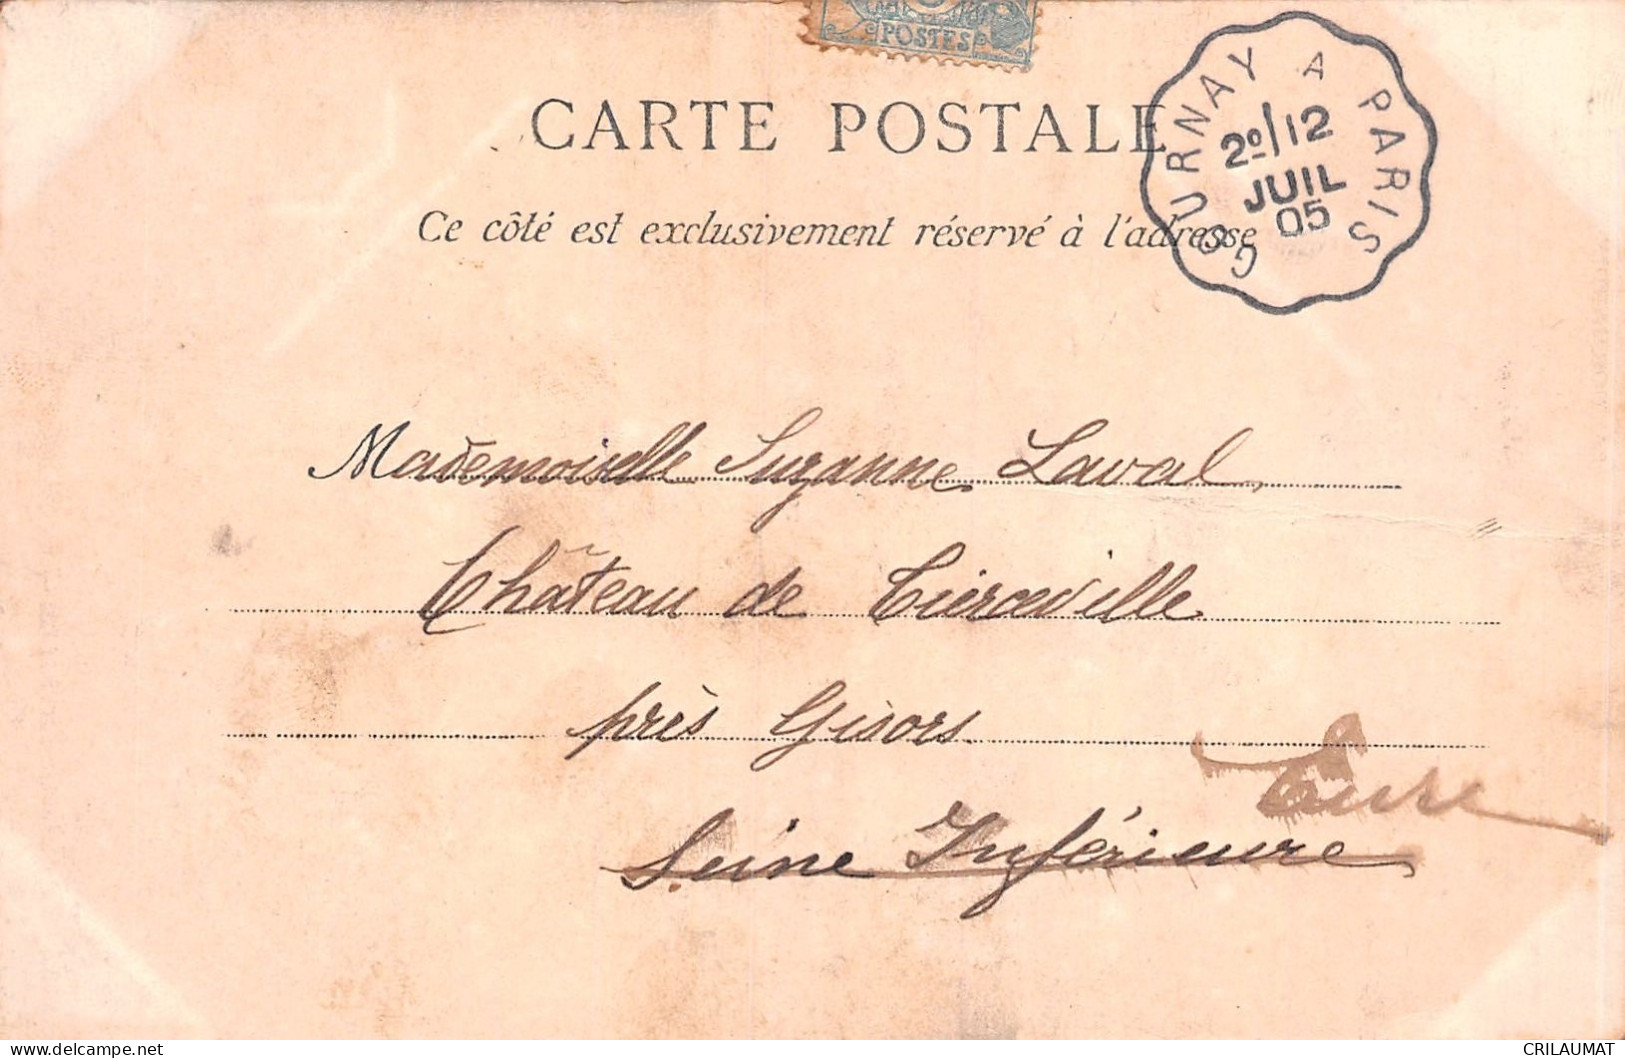 POSTES
CARTE POSTALE
GOURNAY A PARIS
2º/12
JUIL
05
Ce côté est exclusivement réservé à l'adresse
Mademoiselle Suzanne Laval
Château de Tierceville
près Gisors
Eure
Seine Inférieure
CRILAUMAT